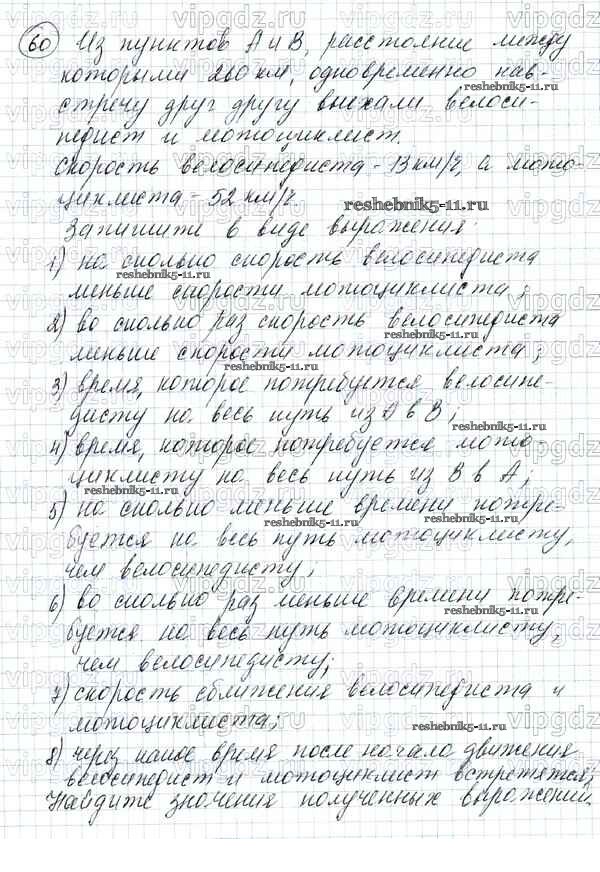 60 Из пунктов А и В, расстояние между
которыми 260 км, одновременно нав-
стречу друг другу выехали велоси-
педист и мотоциклист.
Скорость велосипедиста - 13 км/ч, а мото-
циклиста - 52 км/ч.
Запишите в виде выражения:
1) на сколько скорость велосипедиста
меньше скорости мотоциклиста;
2) во сколько раз скорость велосипедиста
меньше скорости мотоциклиста;
3) время, которое потребуется велосипе-
дисту на весь путь из А в В;
4) время, которое потребуется мото-
циклисту на весь путь из В в А;
5) на сколько меньше времени потре-
буется на весь путь мотоциклисту,
чем велосипедисту;
6) во сколько раз меньше времени потре-
буется на весь путь мотоциклисту,
чем велосипедисту;
7) скорость сближения велосипедиста и
мотоциклиста;
8) через какое время после начала движения
велосипедист и мотоциклист встретятся,
Найдите значения полученных выражений.